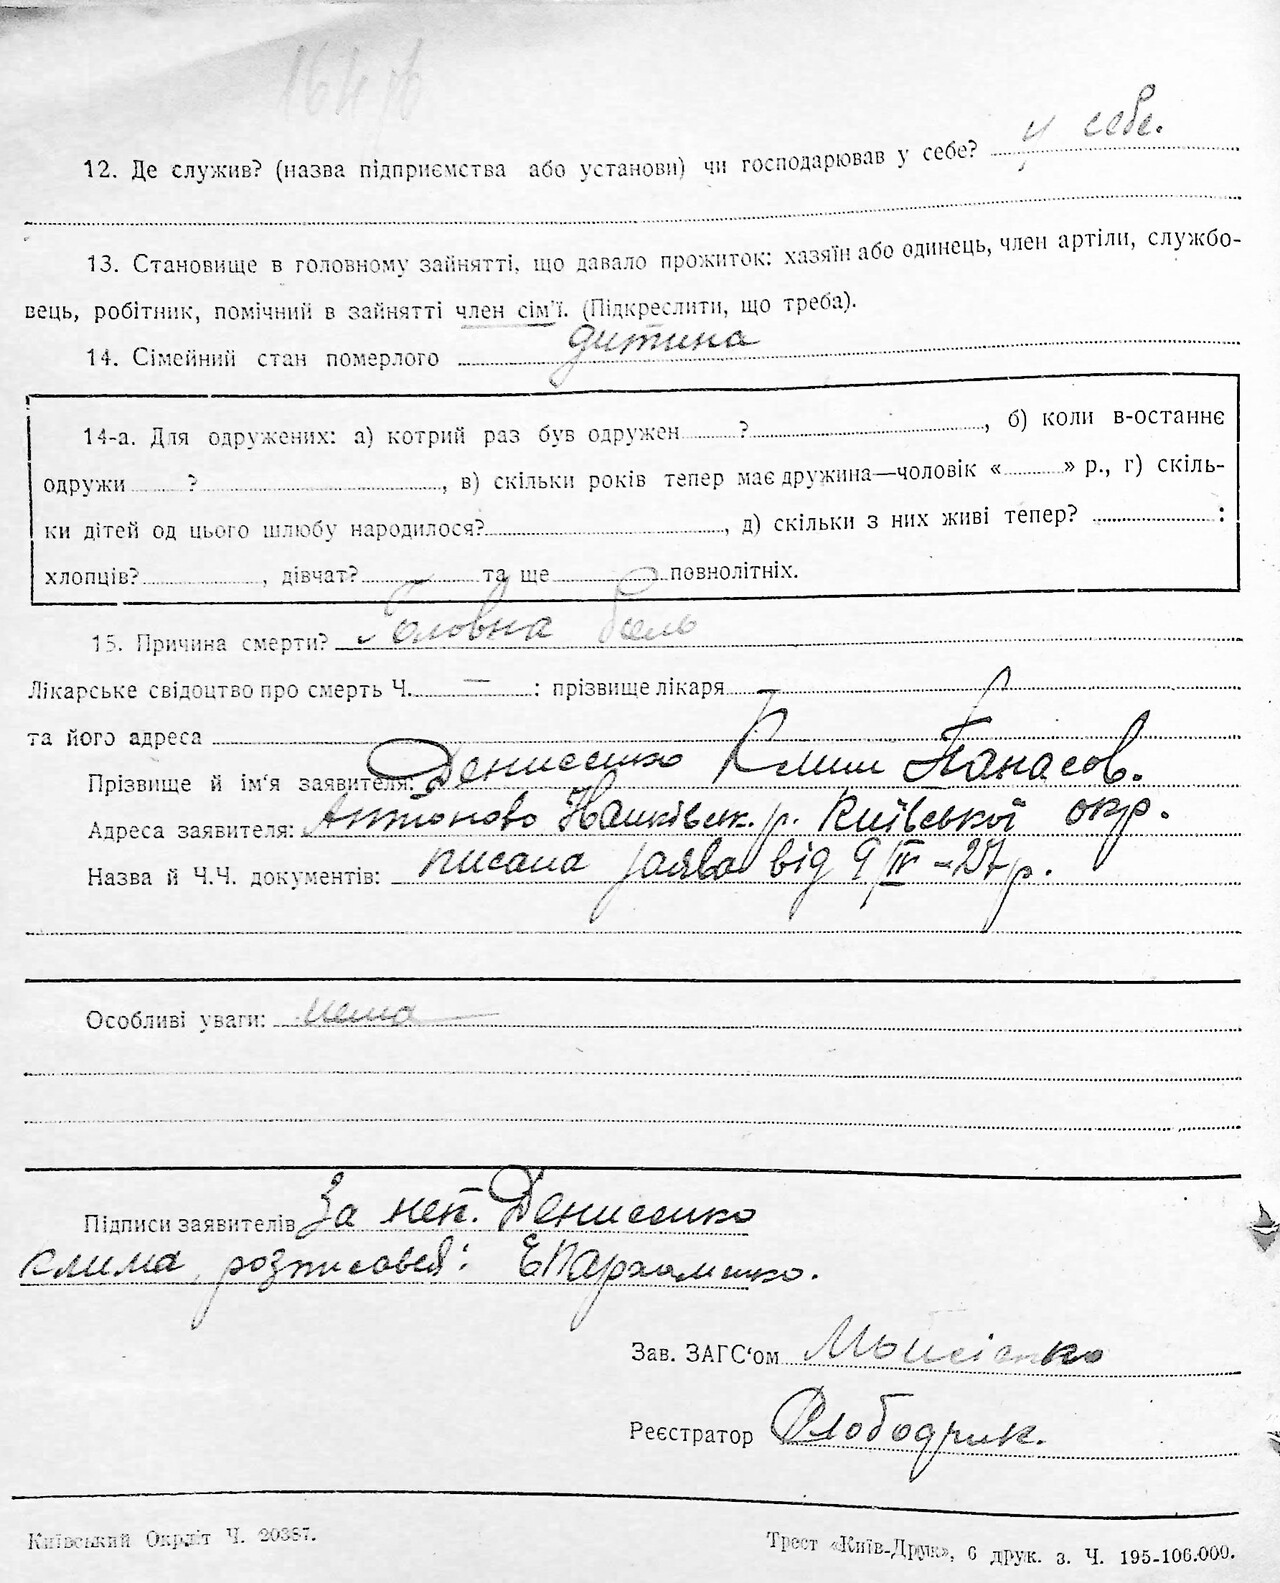 у себе.
12. Де служив? (назва підприємства або установи) чи господарював у себе?
13. Становище в головному зайнятті, що давало прожиток: хазяїн або одинець, член артіли, службо-
вець, робітник, помічний в зайнятті член сім'ї. (Підкреслити, що треба).
14. Сімейний стан померлого дитина
14-а. Для одружених: а) котрий раз був одружен ?, б) коли в-останнє
одружи ?, в) скільки років тепер має дружина—чоловік « » р., г) скіль-
ки дітей од цього шлюбу народилося?, д) скільки з них живі тепер? :
хлопців?, дівчат? та ще повнолітніх.
15. Причина смерти? Головна боль
Лікарське свідоцтво про смерть Ч. — : прізвище лікаря —
та його адреса
Прізвище й ім'я заявителя: Денисенко Клим Панасов.
Адреса заявителя: Антоново р. Київської окр.
Назва й Ч.Ч. документів: писана заява від 9/IV–27 р.
Особливі уваги: нема
Підписи заявителів За неп. Денисенко
Клима, розписовся: Е Пархоменко.
Зав. ЗАГС'ом Мойсієнко
Реєстратор
Київський Окрліт Ч. 20387.
Трест «Київ-Друк», 6 друк. з. Ч. 195-106.000.